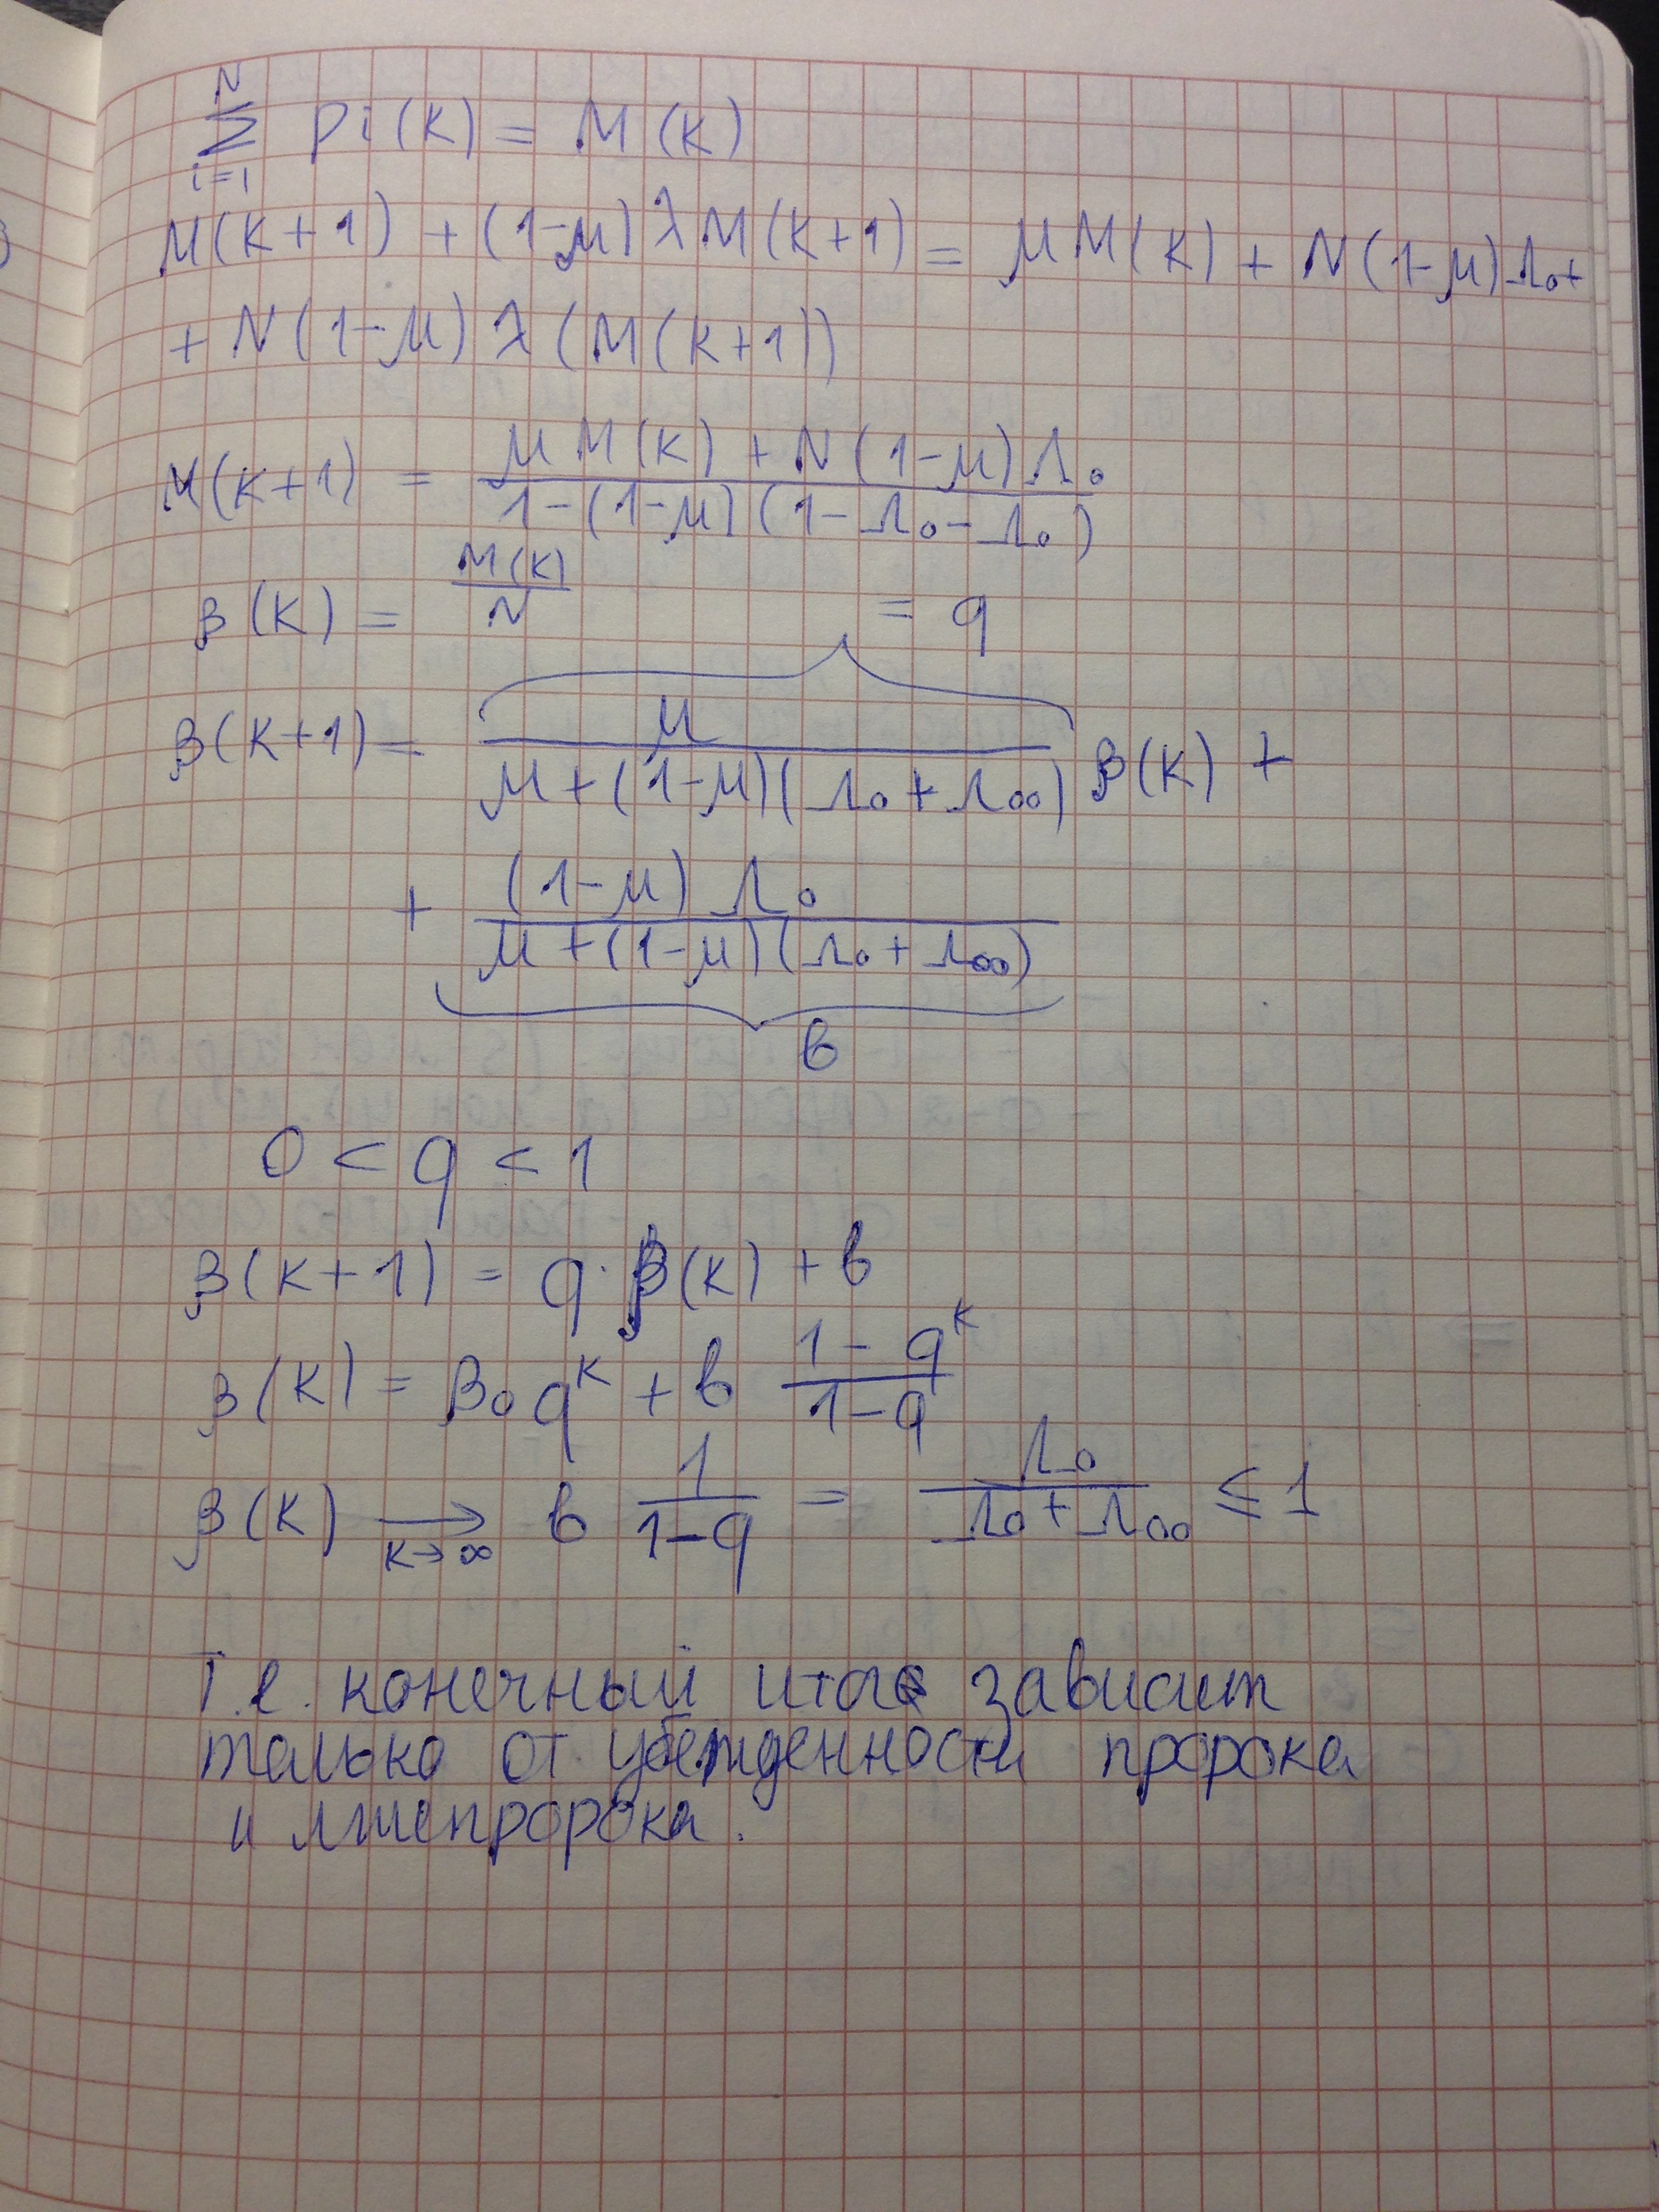 N
∑ Pi(k) = M(k)
i=1
M(k+1) + (1-μ)λM(k+1) = μM(k) + N(1-μ)Λ₀+
+ N(1-μ)λ(M(k+1))
M(k+1) = (μM(k) + N(1-μ)Λ₀) / (1-(1-μ)(1-Λ₀-Λ₀))
β(k) = M(k)/N
= q
β(k+1) = μ / (μ+(1-μ)(Λ₀+Λ₀₀)) β(k) +
+ (1-μ)Λ₀ / (μ+(1-μ)(Λ₀+Λ₀₀))
в
0 < q < 1
β(k+1) = q·β(k) + в
β(k) = β₀ qᵏ + в (1-qᵏ)/(1-q)
β(k) →(k→∞) в 1/(1-q) = Λ₀/(Λ₀+Λ₀₀) ≤ 1
Т.е. конечный итог зависит
только от убежденности пророка
и лжепророка.